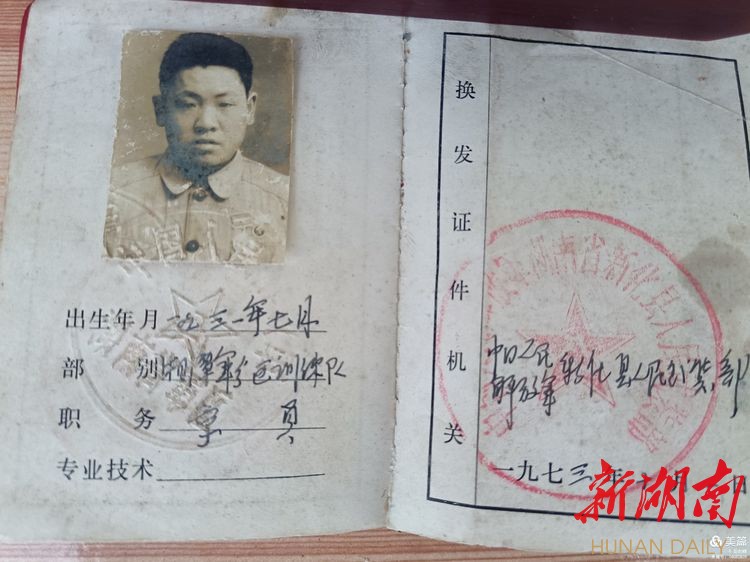 出生年月 一九三一年七月
部别 湖南军区训练队
职务 学员
专业技术
换发证件机关
中国人民
解放军新化县人民武装部
一九七三年
湖南省新化县人
新湖南
HUNAN DAILY
美篇